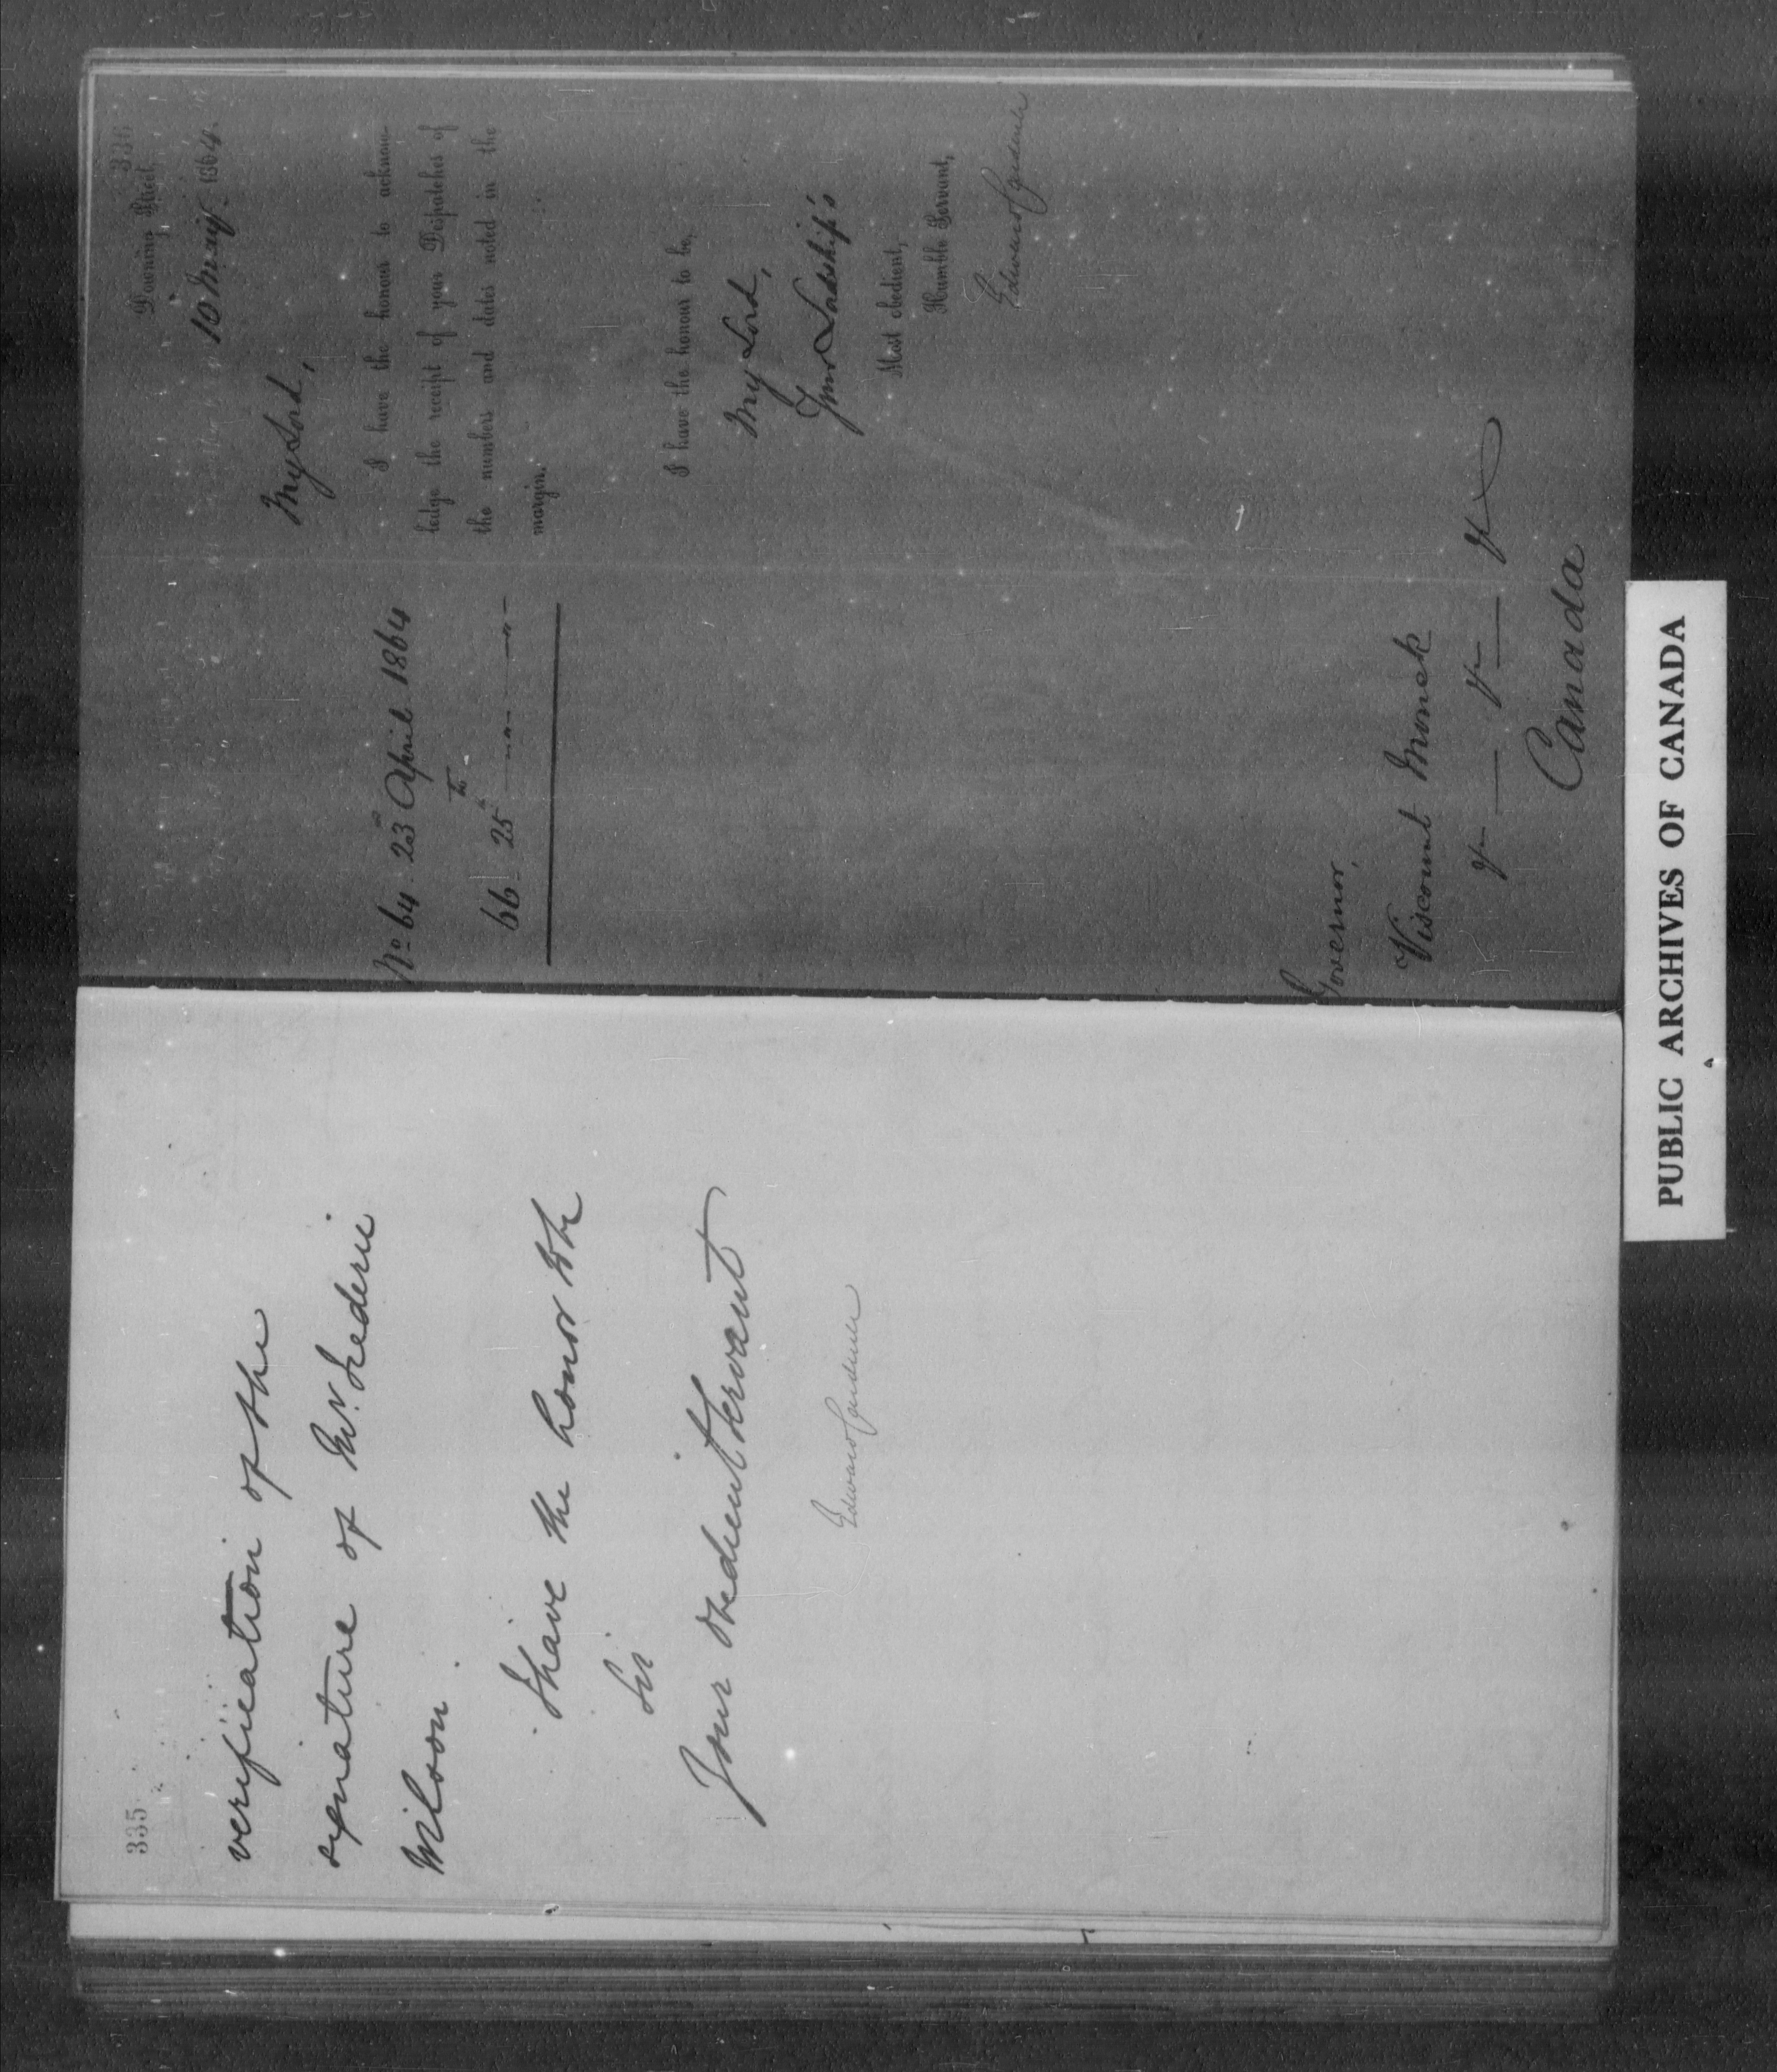 335
verification of the
signature of Mr. Frederic
Wilson.
I have the honor to be
Sir
Your obedient Servant
Edward Cardwell
336
Downing Street,
10 May 1864.
My Lord,
I have the honour to acknow-
ledge the receipt of your Despatches of
the numbers and dates noted in the
margin.
No 64. 23rd April 1864
66. 25th
I have the honour to be,
My Lord,
Your Lordship's
Most obedient,
Humble Servant,
Edward Cardwell
Governor,
Viscount Monck
&c — &c — &c
Canada
PUBLIC ARCHIVES OF CANADA